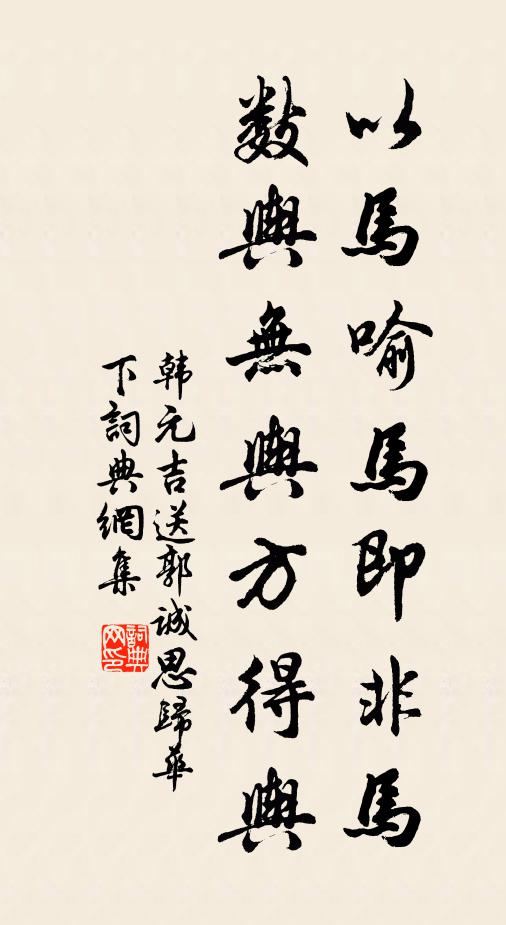 以馬喻馬即非馬
數輿無輿方得輿
韩元吉送郭诚思歸華
下詞典網集
詞典網印